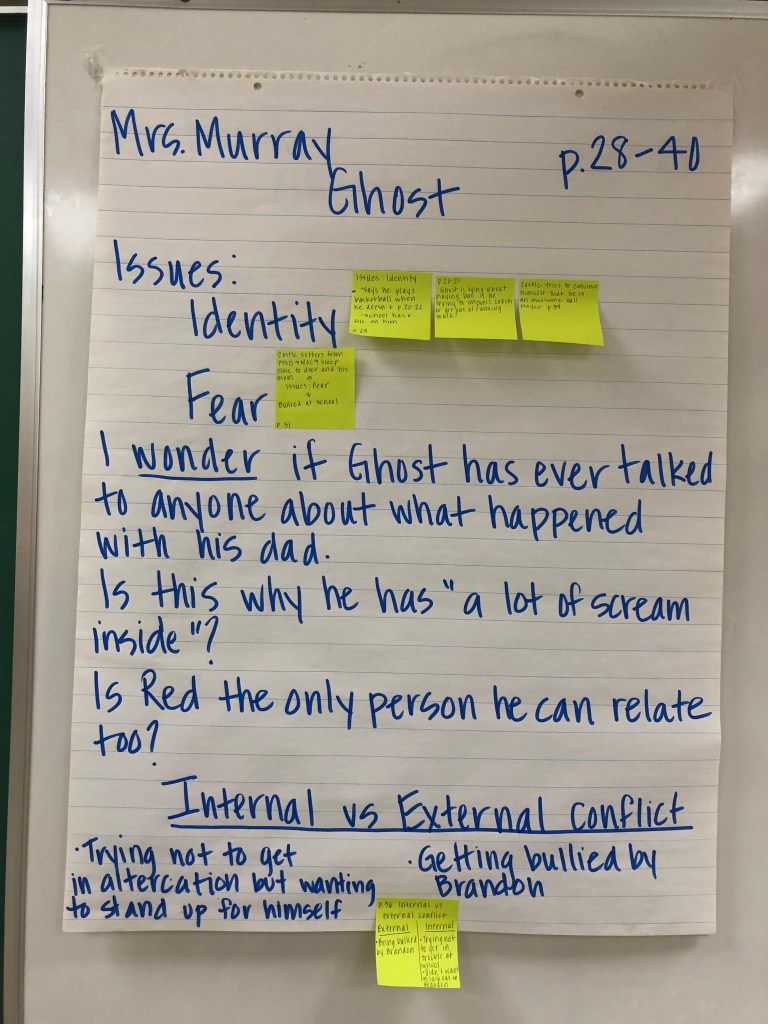 Mrs. Murray
p.28-40
Ghost
Issues:
Identity
Issues: Identity
- "Says he plays
basketball when
he doesn't p.20-21
"school has a
file on him
p. 28
p.20-21
Ghost is lying about
playing ball. Is he
trying to impress coach
or get out of running
track?
Castle tries to convince
himself that he is
an awesome ball
player. p.34
Fear
Castle suffers from
sleep
close to door and his
mom
Issues: Fear
Bullied at school
p.31
I wonder if Ghost has ever talked
to anyone about what happened
with his dad.
Is this why he has "a lot of scream
inside"?
Is Red the only person he can relate
too?
Internal vs External Conflict
· Trying not to get
in altercation but wanting
to stand up for himself
· Getting bullied by
Brandon
p.36 Internal vs
external conflict
External
• Being bullied
by Brandon
Internal
• Trying not
to get in
trouble at
school
• Didn't want
to on
Brandon